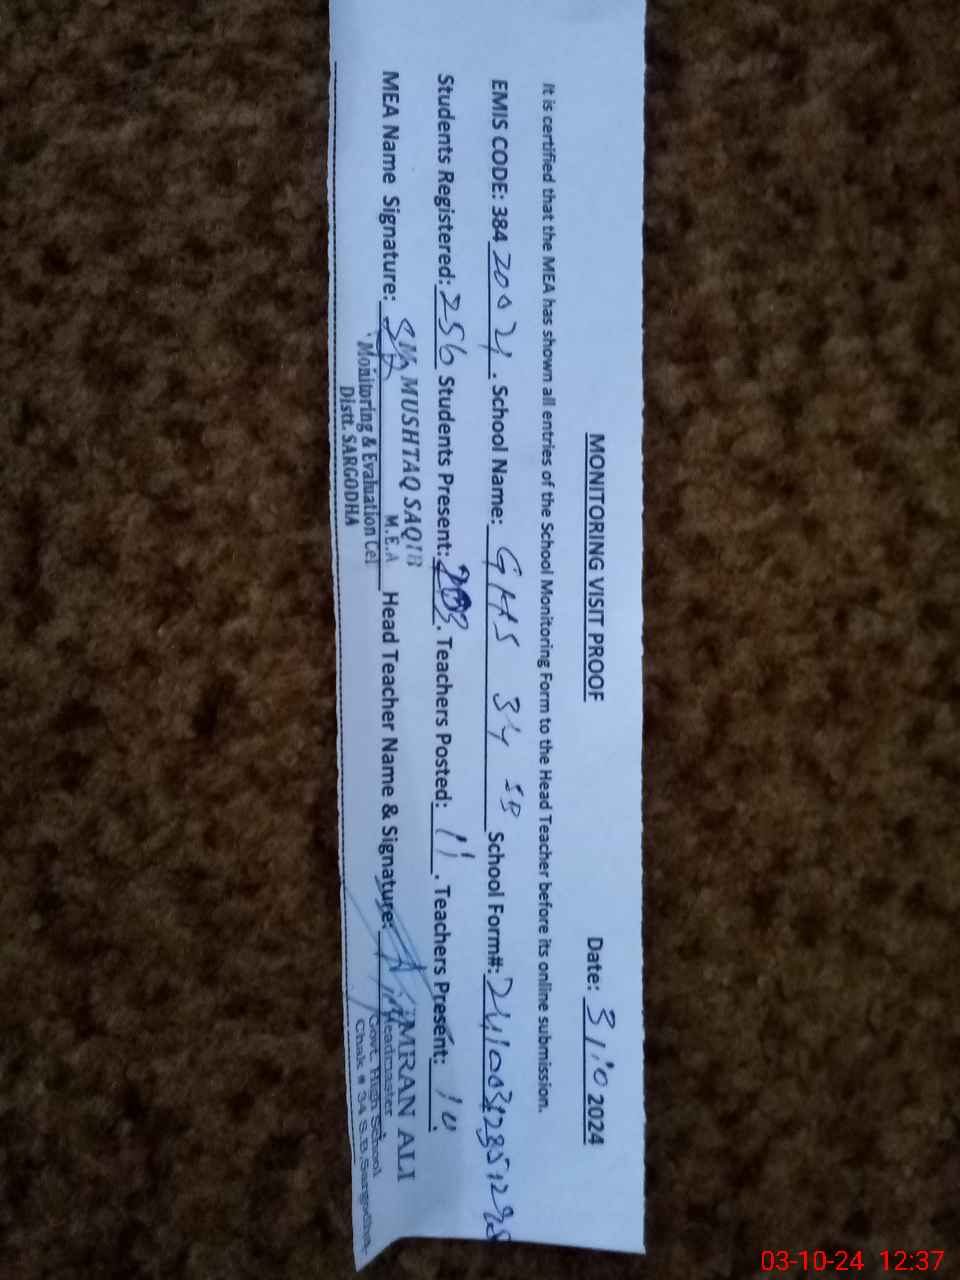 MONITORING VISIT PROOF
Date: 3/10 2024
It is certified that the MEA has shown all entries of the School Monitoring Form to the Head Teacher before its online submission.
EMIS CODE: 38420021. School Name: GHS 34 SB School Form#:
Students Registered: 256 Students Present: 203. Teachers Posted: 11. Teachers Present: 10.
MEA Name Signature: MUSHTAQ SAQIB Head Teacher Name & Signature: IMRAN ALI
M.E.A
Monitoring & Evaluation Cel
Distt. SARGODHA
Headmaster
Govt. High School
Chak # 34 S.B.Sargodha.
03-10-24 12:37